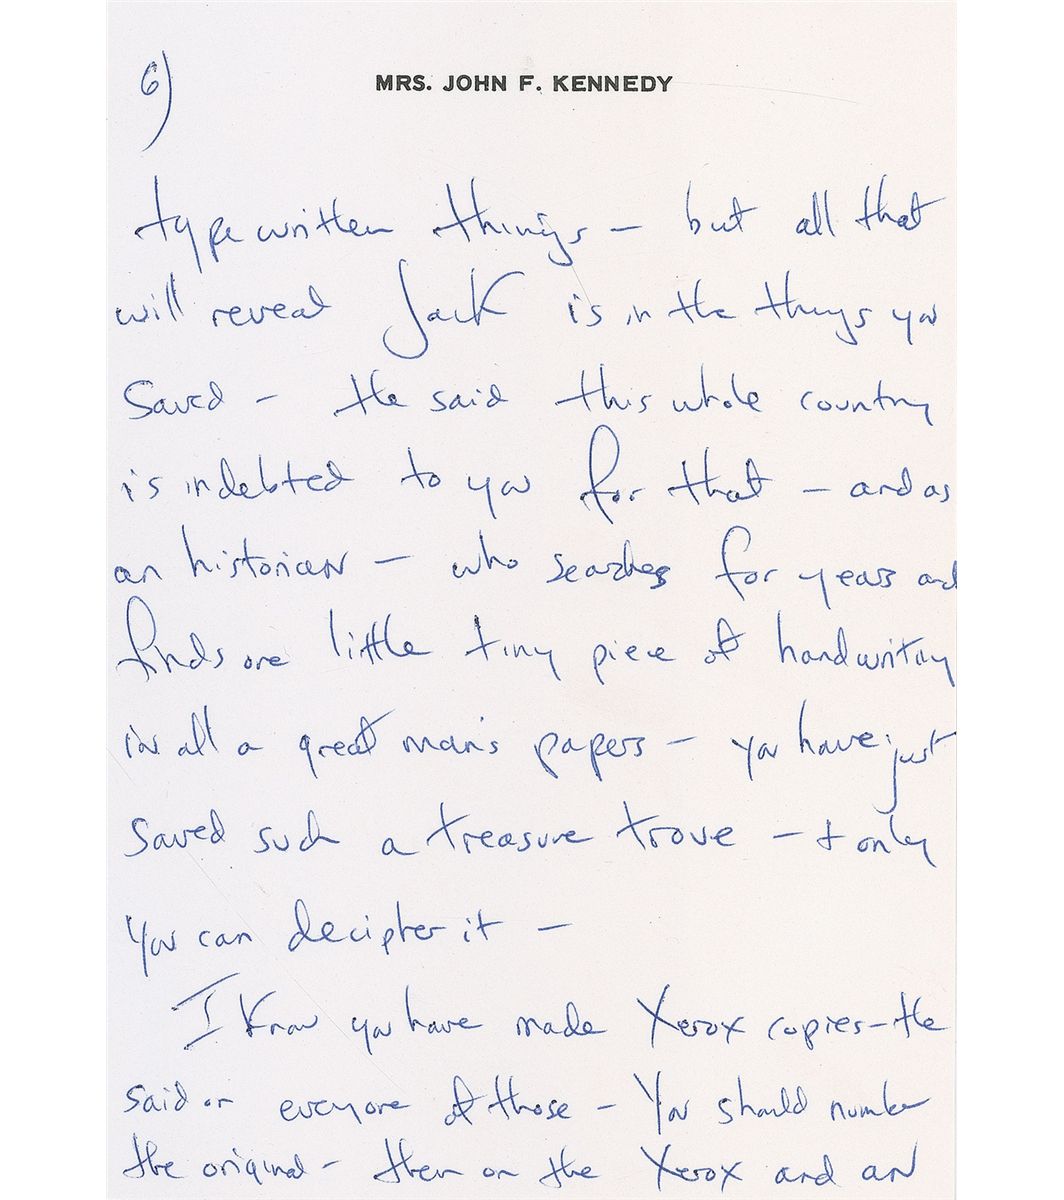 6)
MRS. JOHN F. KENNEDY
typewritten things — but all that
will reveal Jack is in the things you
saved — He said this whole country
is indebted to you for that — and as
an historian — who searches for years and
finds one little tiny piece of handwriting
in all a great man's papers — you have just
saved such a treasure trove — & only
you can decipher it —
I know you have made Xerox copies — He
said on everyone of those — You should number
the original — then on the Xerox and an